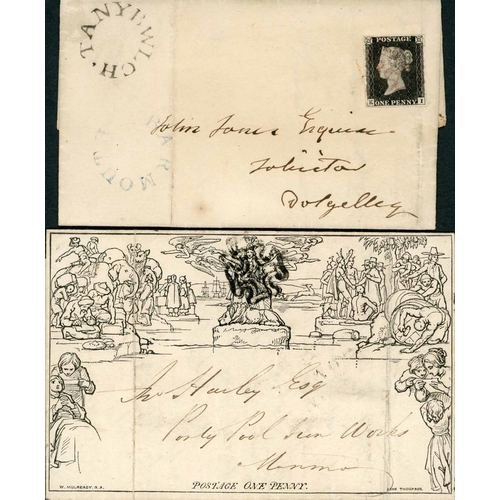 TANYBWLCH.
POSTAGE
ONE PENNY
I
John Jones Esquire
Solicitor
Dolgelley
Harley Esq
Works
W. MULREADY. R.A.
POSTAGE ONE PENNY.
JOHN THOMPSON